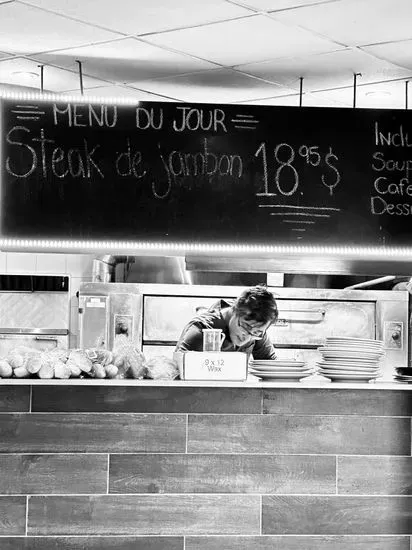 MENU DU JOUR
Steak de jambon 18.95 $
Soup
Café
9 x 12
Wax